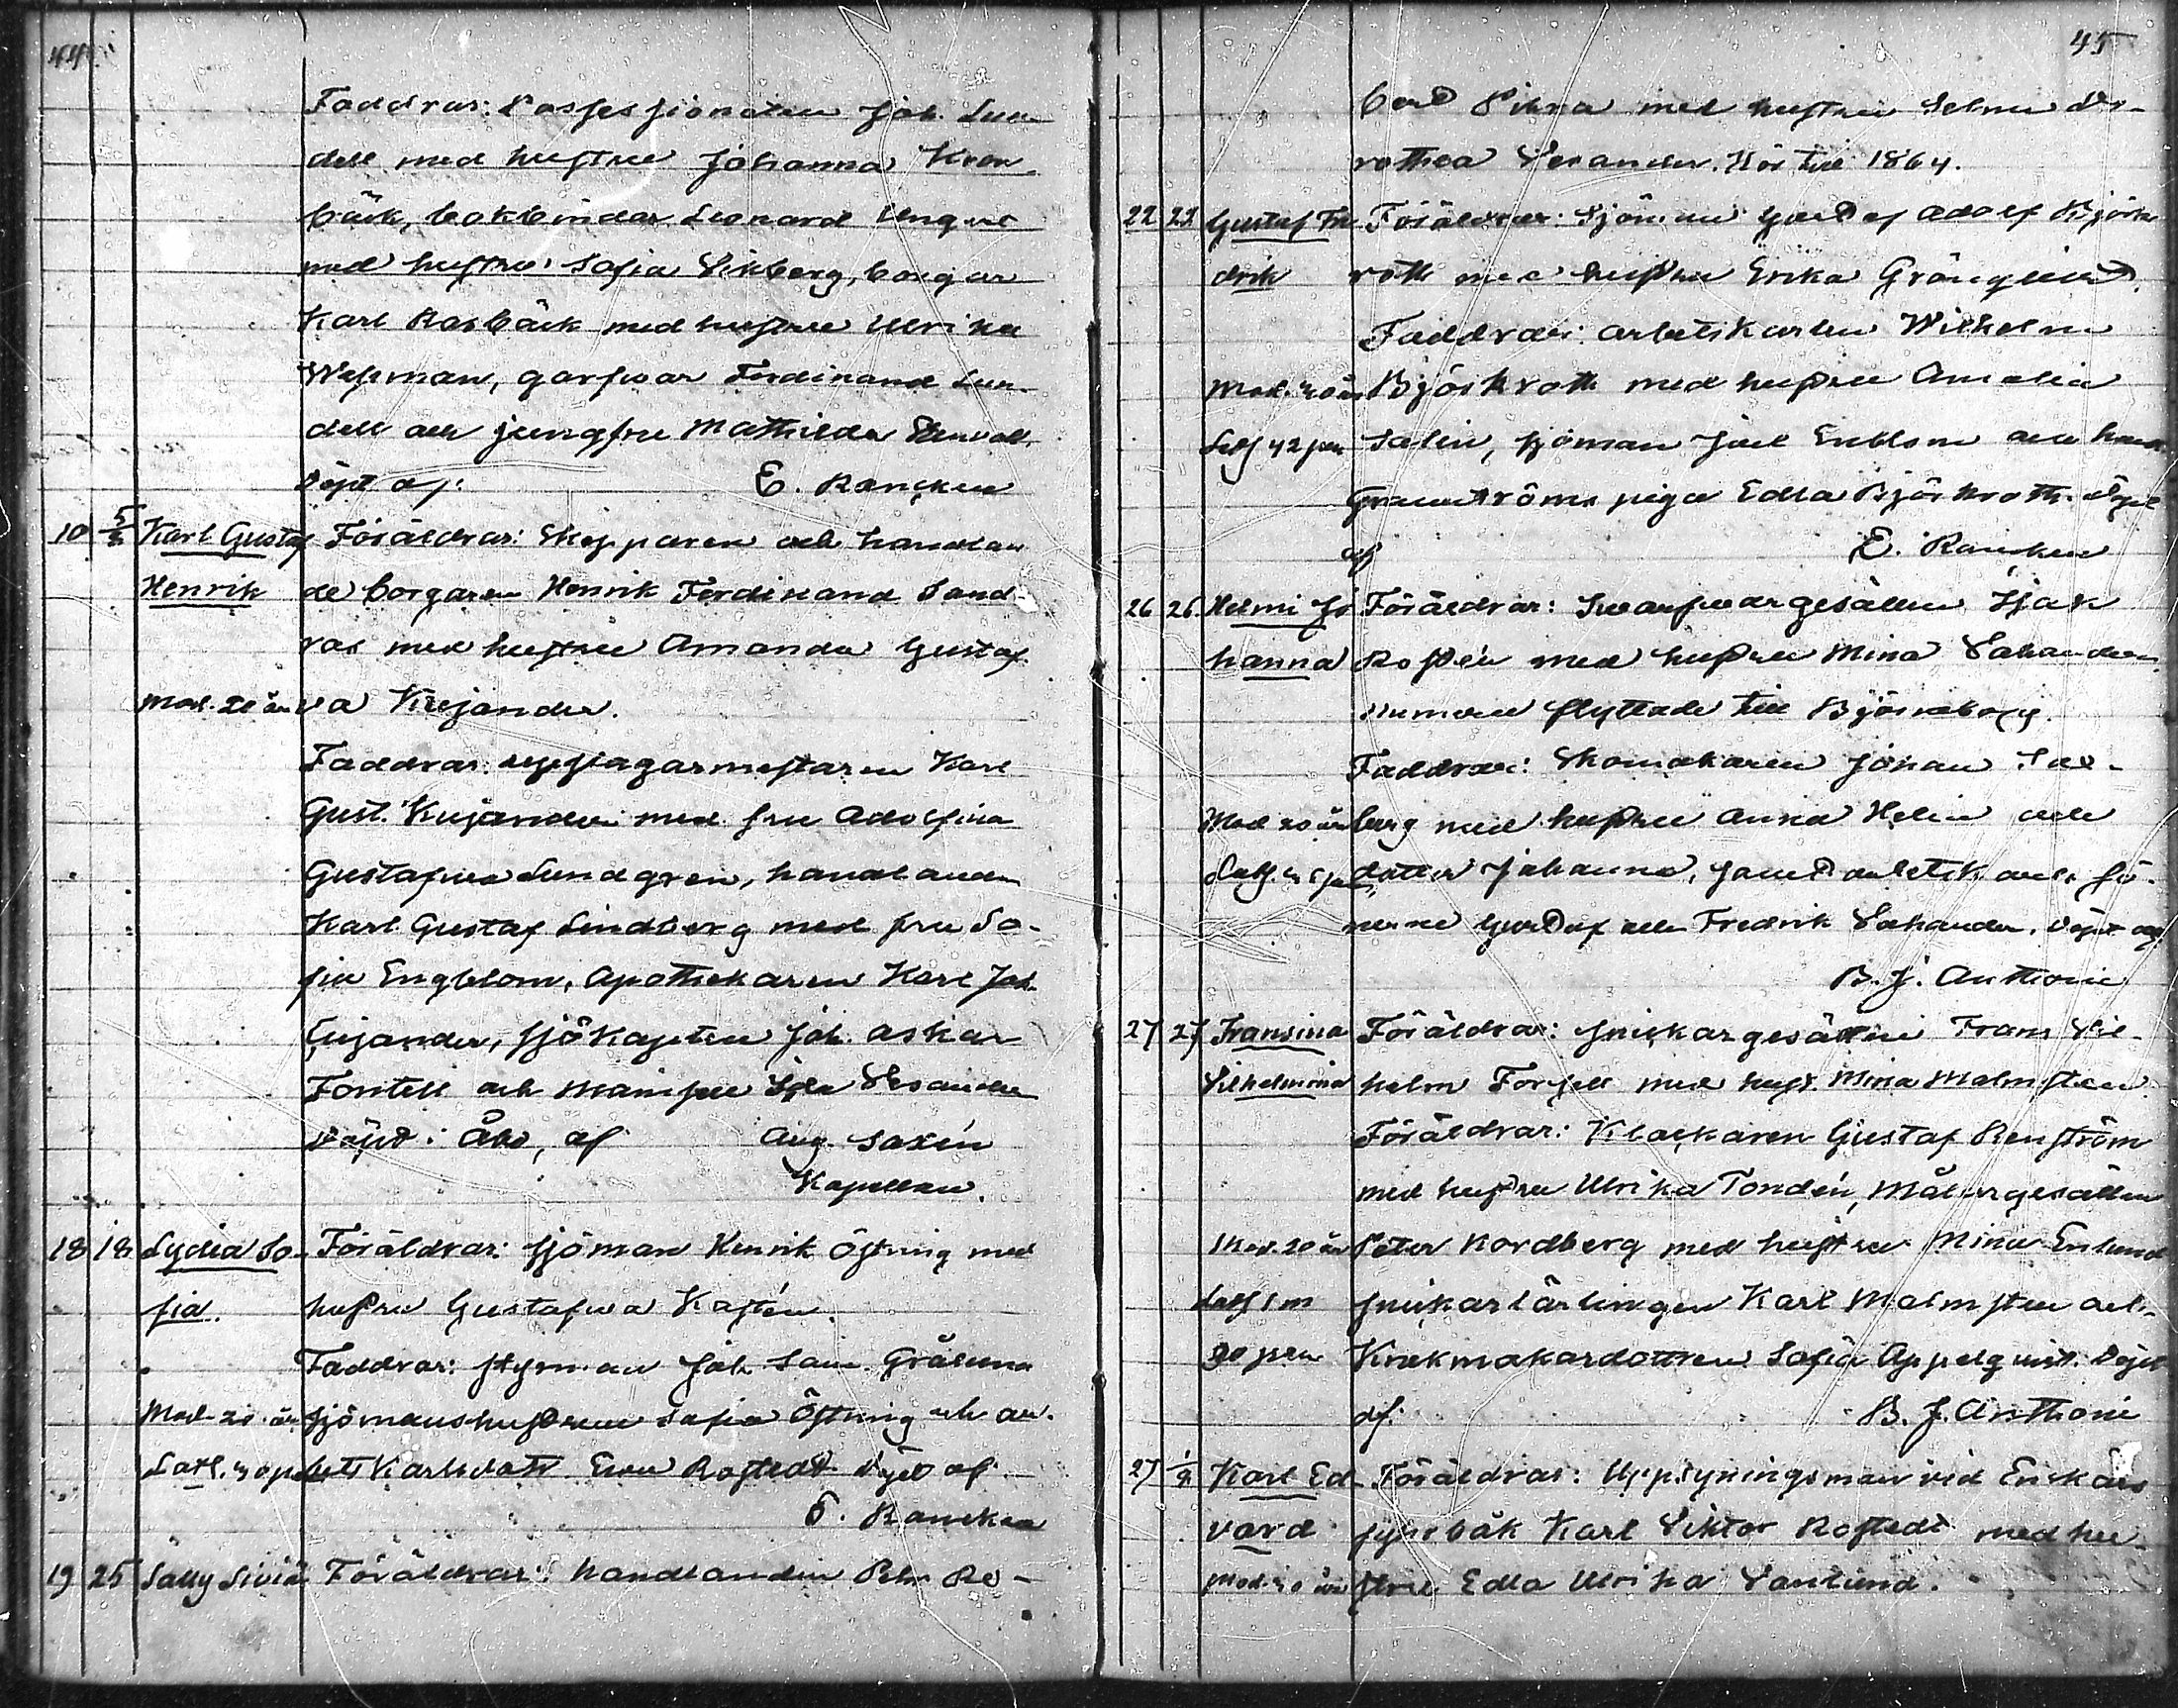 44
Faddrar: Possessionaten Joh. Lun
dell med hustru Johanna Kron
bäck, bokbindar Leonard Ungert
med hustru Sofia Vikberg, borgar
Karl Rosbäck med hustru Ulrika
Wessman, garfvar Ferdinand Lun-
dell och jungfru Mathilda Stenvall.
Döpt af: E. Rancken
10 5/2 Karl Gustaf Föräldrar: Skepparen och handlan
Henrik de borgaren Henrik Ferdinand Sand-
ros med hustru Amanda Gustaf
Mod. 20 år va Kujander.
Faddrar: repslagarmästaren Karl
Gust. Kujander med fru Adolfina
Gustafva Lundgren, handlanden
Karl Gustaf Lindberg med fru So-
fia Engblom, Apothekaren Karl Joh.
Cujander, sjökapten Joh. Oskar
Fontell och Mamsell Ida
Döpt i Åbo, af Aug. Saxén
Kapellan.
18 18 Lydia So- Föräldrar: sjöman Henrik Östring med
fia. hustru Gustafva Kastén.
Faddrar: styrman Joh. Sam. Grålund
Mod. 20 år sjömanshustrun Sofia Östring och ar-
bets karlsdotr Eva Rostedt Döpt af
E. Rancken
19 25 Sally Livia Föräldrar: handlanden Pehr Ro-
45
bert Sihra med hustru Selma Do-
rothea Verander. Hör till 1864.
22 23 Gustaf Fre Föräldrar: Sjöman Gustaf Adolf Björk
drik roth med hustru Erika Grönqvist.
Faddrar: arbetskarlen Wilhelm
Mod. 40 år Björkroth med hustru Amalia
Salin, sjöman Joel Enblom och hand.
Grannströms piga Edla Björkroth. Döpt
af E. Rancken
26 26. Helmi Jo Föräldrar: Svarfvargesällen Isjak
hanna Rossén med hustru Mina Sahander
numera flyttade till Björneborg.
Faddrar: Skomakaren Johan
Mod 20 år berg med hustru Anna Helin och
dotter Johanna, samt arbetsk. och sö-
nerne Gustaf och Fredrik Sahander. Döpt af
B. J. Anthoni
27 27 Fransina Föräldrar: snickargesällen Frans Vil-
Vilhelmina helm Forsell med hust. Mina Malmsten
Föräldrar: Klockaren Gustaf Renström
med hustru Ulrika Tondén, Målargesällen
Mod. 20 år Peter Nordberg med hustru Mina Enlund
snickarlärlingen Karl Malmsten och
Krukmakardottren Sofia Appelqvist. Döpt
af B. J. Anthoni
27 1/9 Karl Ed- Föräldrar: Uppsyningsman vid Enskärs
vard fyrbåk Karl Viktor Rostedt med hu-
stru Edla Ulrika Vanlund.